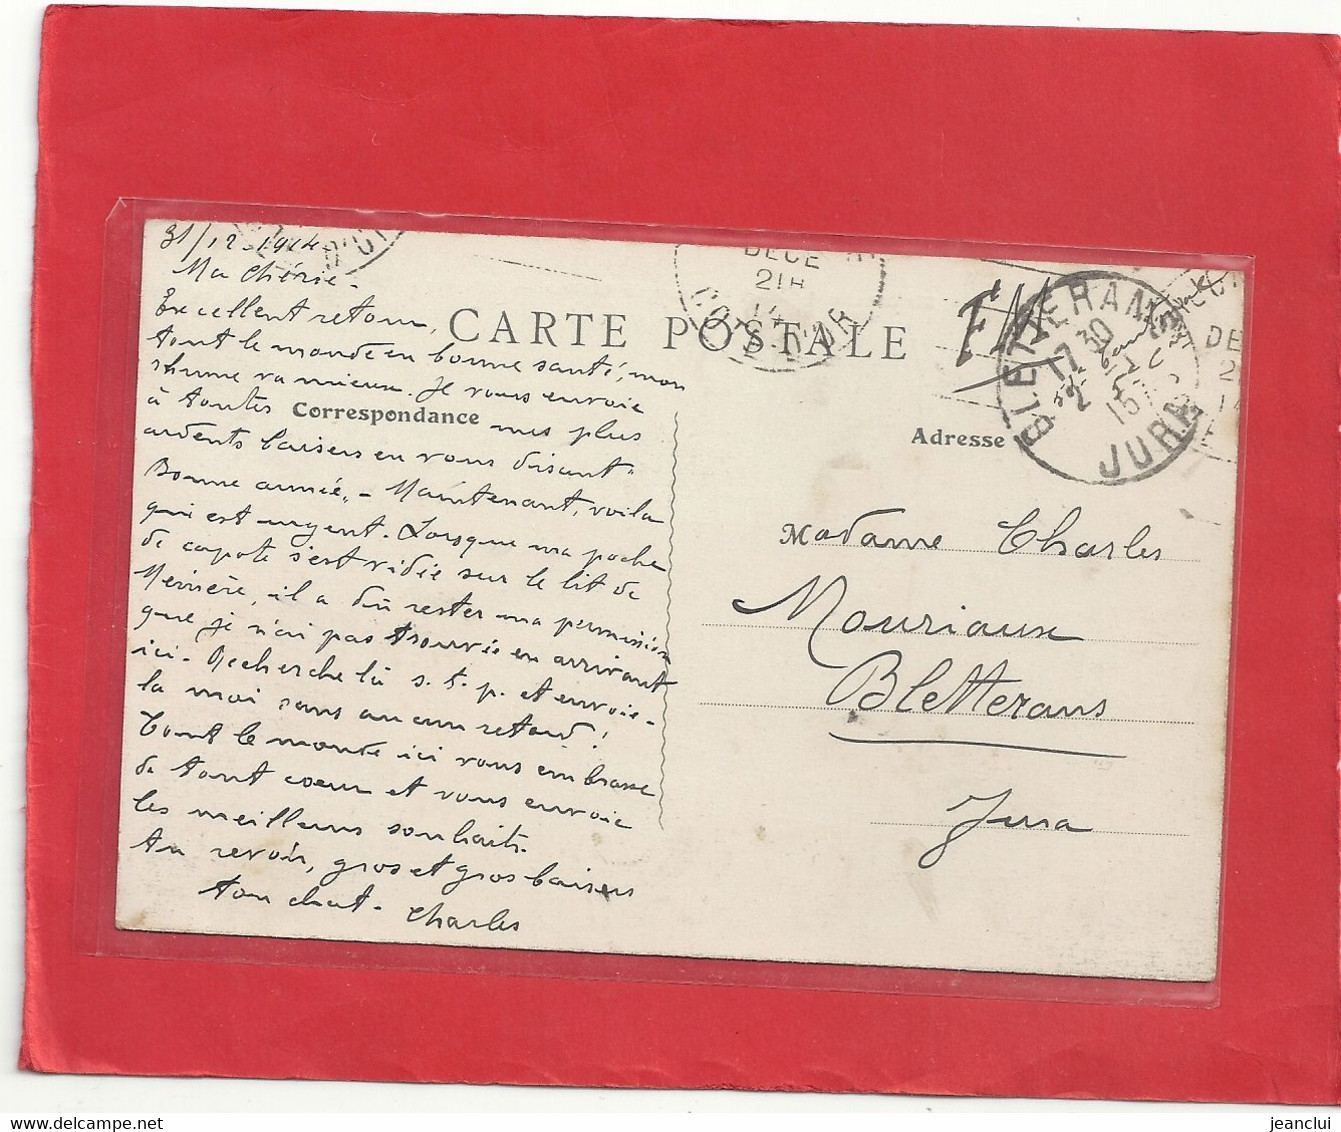 31/12-1914
Ma Chérie -
Excellent retour,
tout le monde en bonne santé, mon
rhume va mieux. Je vous envoie
à toutes mes plus
ardents baisers en vous disant "
Bonne année" - Maintenant, voilà
qui est urgent. Lorsque ma poche
de capote s'est vidée sur le lit de
il a dû rester ma permission
que je n'ai pas trouvée en arrivant
ici - Recherche là s. t. p. et envoie-
la moi sans aucun retard!
Tout le monde ici vous embrasse
de tout coeur et vous envoie
les meilleurs souhaits.
Au revoir, gros et gros baisers
ton chat - Charles
CARTE POSTALE
Correspondance
Adresse
FM
DECE
21H
14
COTE D'OR
BLETTERANS
17 30
2
15
JURA
DE
Madame Charles
Mouriaux
Bletterans
Jura
jeanclui